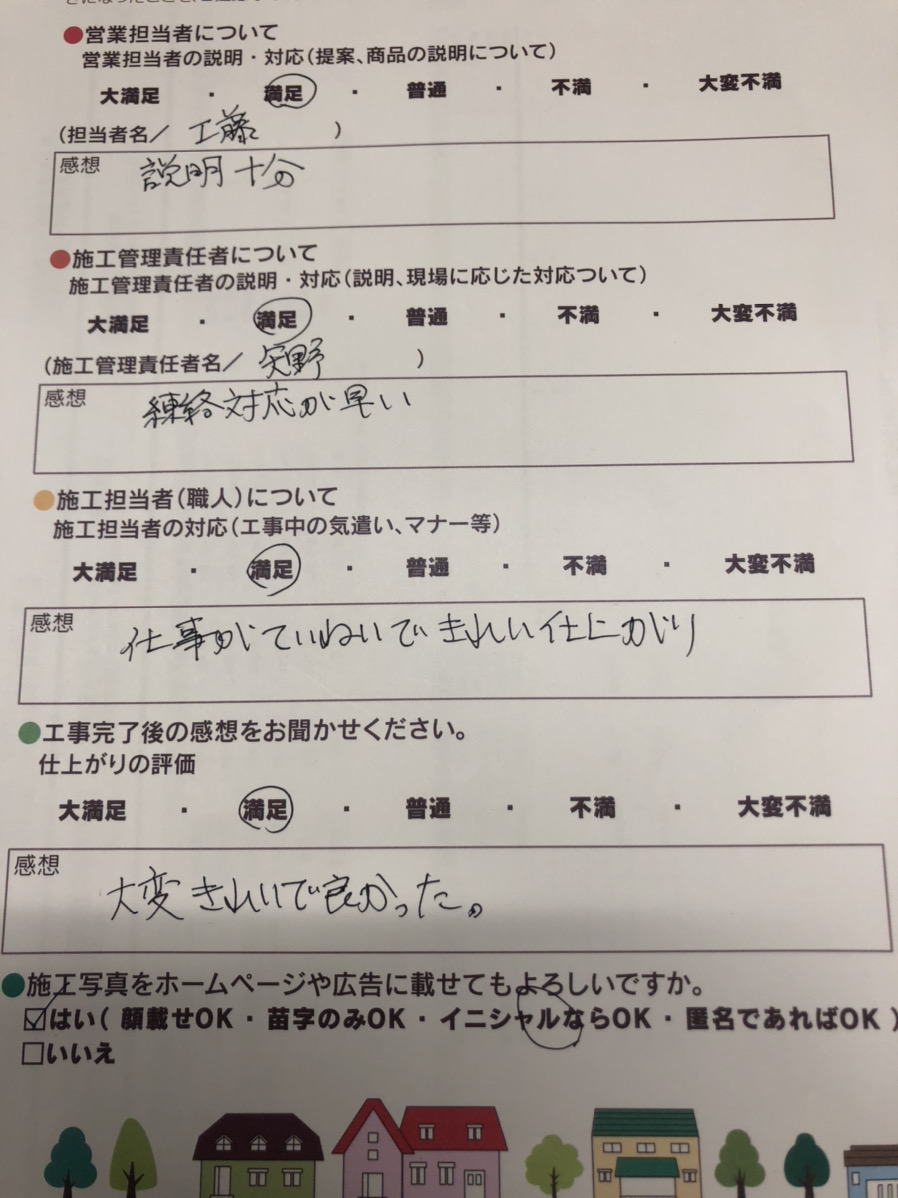 ●営業担当者について
営業担当者の説明・対応（提案、商品の説明について）
大満足 ・ 満足 ・ 普通 ・ 不満 ・ 大変不満
（担当者名／ 工藤 ）
感想 説明十分
●施工管理責任者について
施工管理責任者の説明・対応（説明、現場に応じた対応ついて）
大満足 ・ 満足 ・ 普通 ・ 不満 ・ 大変不満
（施工管理責任者名／ 矢野 ）
感想 連絡対応が早い
●施工担当者（職人）について
施工担当者の対応（工事中の気遣い、マナー等）
大満足 ・ 満足 ・ 普通 ・ 不満 ・ 大変不満
感想 仕事がていねいできれい仕上がり
●工事完了後の感想をお聞かせください。
仕上がりの評価
大満足 ・ 満足 ・ 普通 ・ 不満 ・ 大変不満
感想 大変きれいで良かった。
●施工写真をホームページや広告に載せてもよろしいですか。
☑はい（ 顔載せOK ・ 苗字のみOK ・ イニシャルならOK ・ 匿名であればOK ）
□いいえ